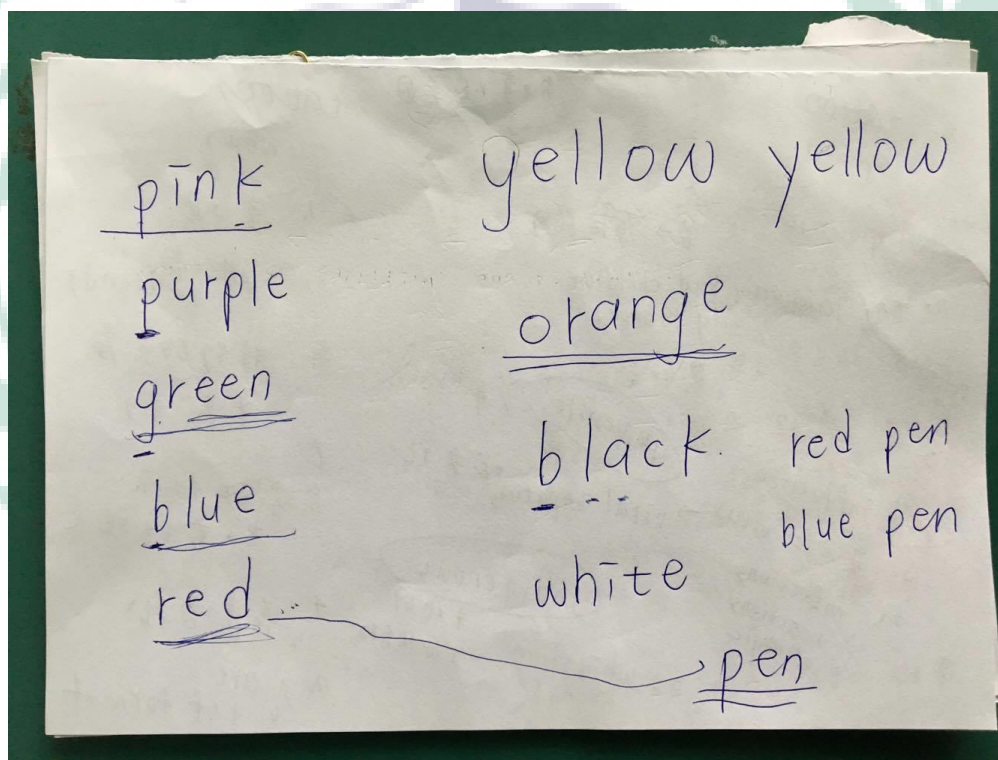 pink
purple
green
blue
red
yellow yellow
orange
black.
white
red pen
blue pen
pen